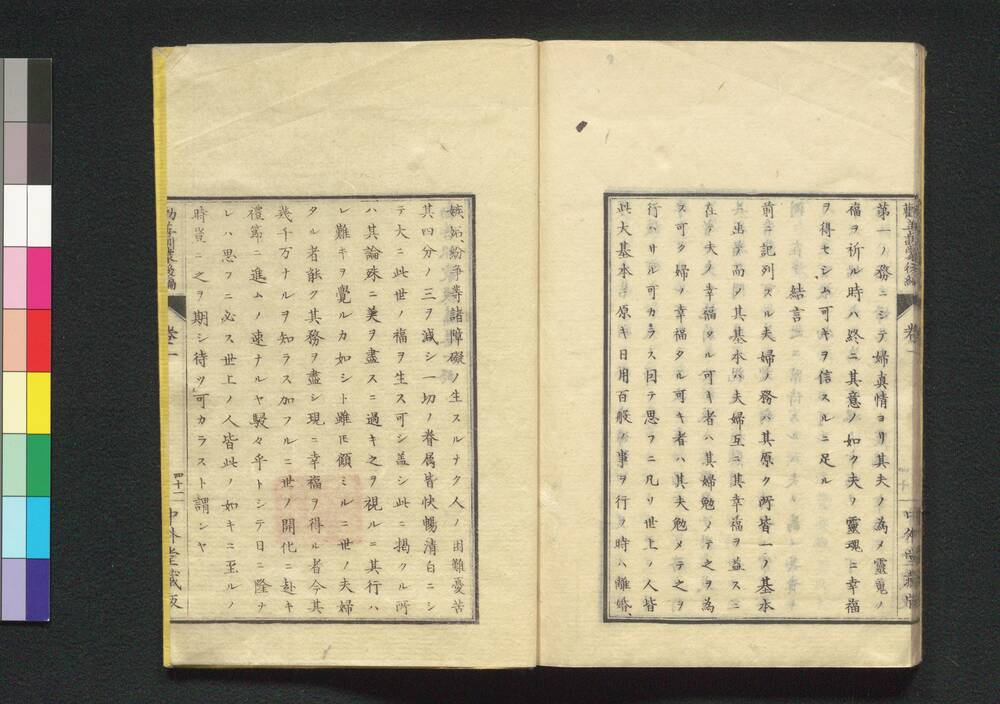 勸善訓蒙後編
卷一
中外堂藏版
第一ノ務ニシテ婦真情ヨリ其夫ノ為メ靈鬼ノ
福ヲ祈ル時ハ終ニ其意ノ如ク夫ノ靈魂ニ幸福
ヲ得セシム可キヲ信スルニ足ル
結言
前ニ記列スル夫婦ノ務ハ其原ク所皆一ノ基本
ニ出テ而〆其基本ハ夫婦互ニ其幸福ヲ益スニ
在テ夫ノ幸福タル可キ者ハ其婦勉メテ之ヲ為
ス可ク婦ノ幸福タル可キ者ハ其夫勉メテ之ヲ
行ハサル可カラス因テ思フニ凡リ世上ノ人皆
此大基本ニ原キ日用百般ノ事ヲ行フ時ハ離婚
嫉妬紛爭等諸障礙ノ生スルナク人ノ困難憂苦
其四分ノ三ヲ減シ一切ノ眷属皆快暢清白ニシ
テ大ニ此世ノ福ヲ生ス可シ盖シ此ニ揭クル所
ハ其論殊ニ美ヲ盡スニ過キ之ヲ視ルニ其行ハ
レ難キヲ覺ルカ如シト雖𪜈顧ミルニ世ノ夫婦
タル者能ク其務ヲ盡シ現ニ幸福ヲ得ル者今其
幾千万ナルヲ知ラス加フルニ世ノ開化ニ赴キ
禮節ニ進ムノ速ナルヤ駸々乎トシテ日ニ隆ナ
レハ思フニ必ス世上ノ人皆此ノ如キニ至ルノ
時豈ニ之ヲ期シ待ツ可カラスト謂シヤ
勸善訓蒙後編
卷一
四十二
中外堂藏版